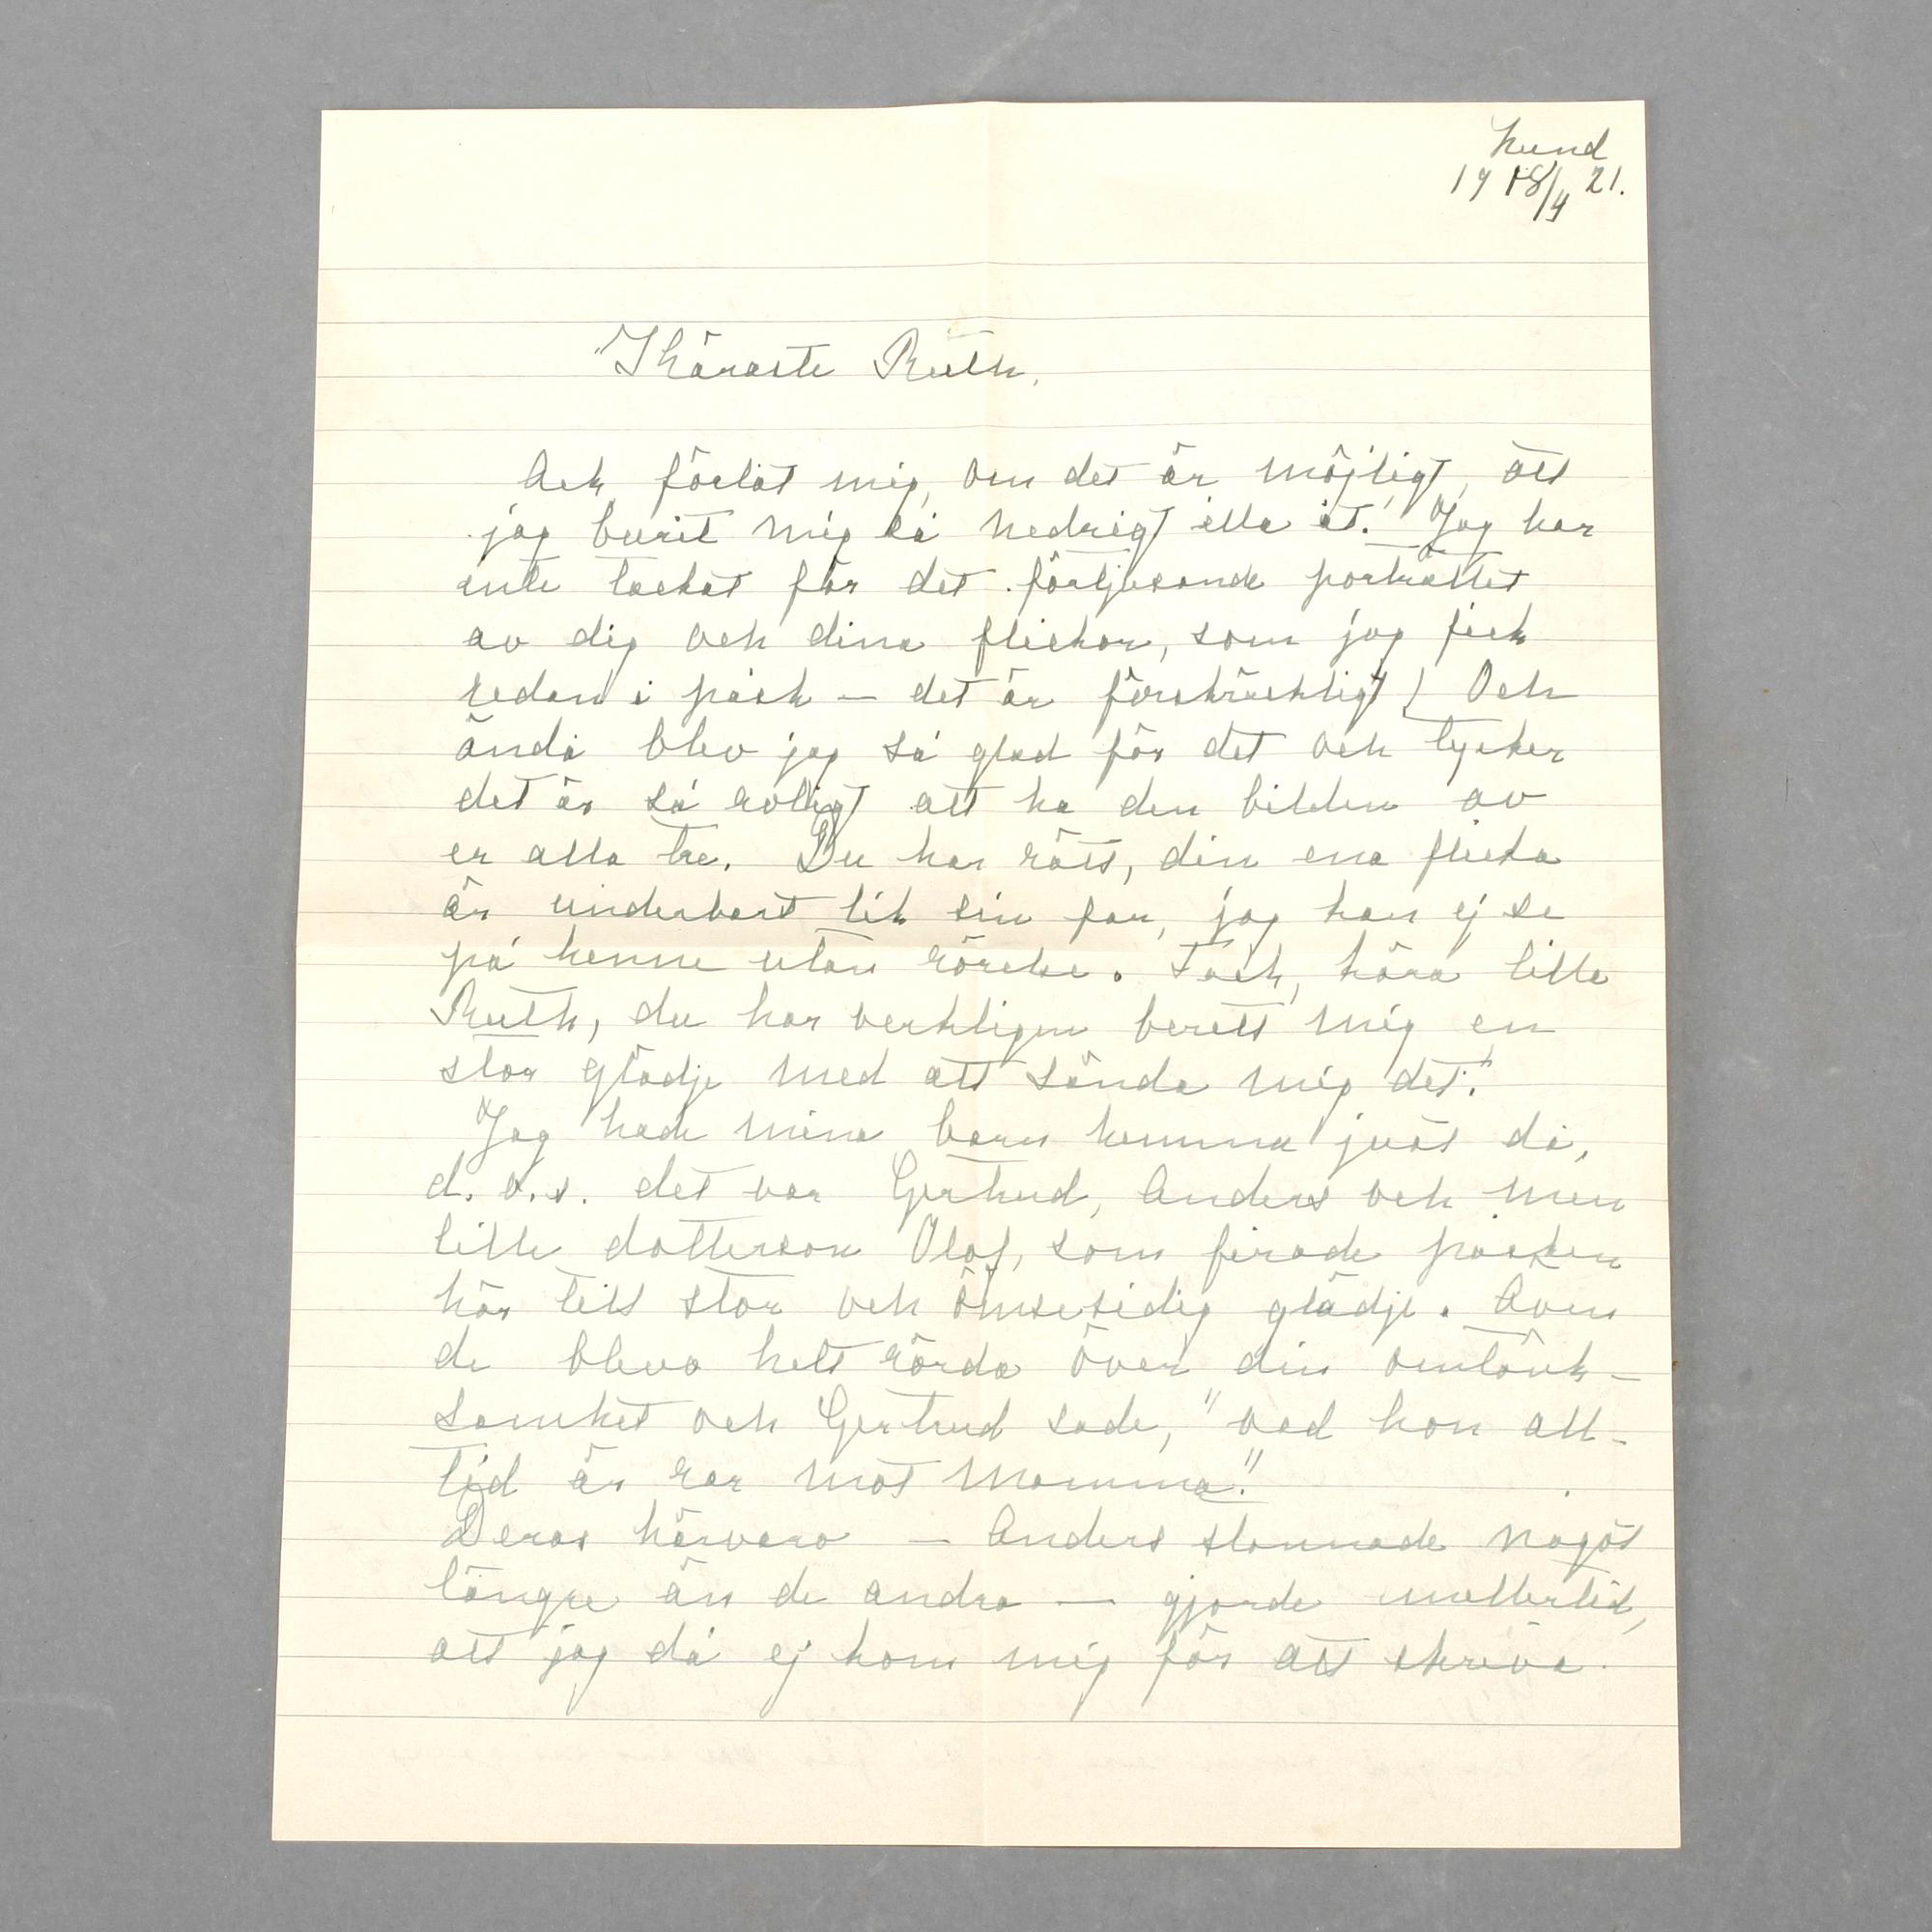 Lund
19 18/4 21.
Käraste Ruth,
Ack förlåt mig, om det är möjligt, att
jag burit mig så nedrigt illa åt! Jag har
inte tackat för det förtjusande porträttet
av dig och dina flickor, som jag fick
redan i påsk — det är förskräckligt! Och
ändå blev jag så glad för det och tycker
det är så roligt att ha den bilden av
er alla tre. Du har rätt, din ena flicka
är underbart lik sin far, jag kan ej se
på henne utan rörelse. Tack, kära lilla
Ruth, du har verkligen berett mig en
stor glädje med att sända mig det!
Jag hade mina barn hemma just då,
d. v. s. det var Gertrud, Anders och min
lille dotterson Olof, som firade påsken
här till stor och ömsesidig glädje. Även
de blevo helt rörda över din omtänk-
samhet och Gertrud sade, "vad hon all-
tid är rar mot Mamma!"
Deras härvaro — Anders stannade något
längre än de andra — gjorde emellertid,
att jag då ej kom mig för att skriva.